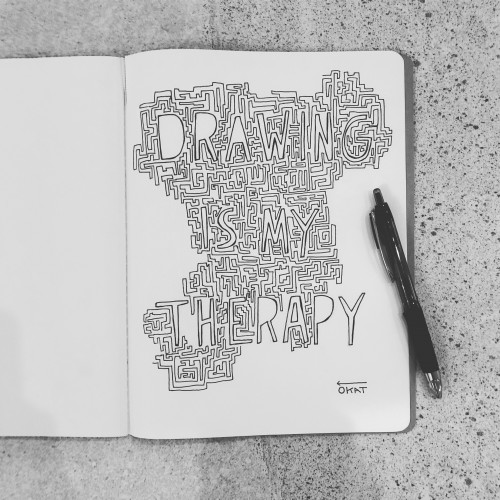 DRAWING
IS MY
THERAPY
OKAT